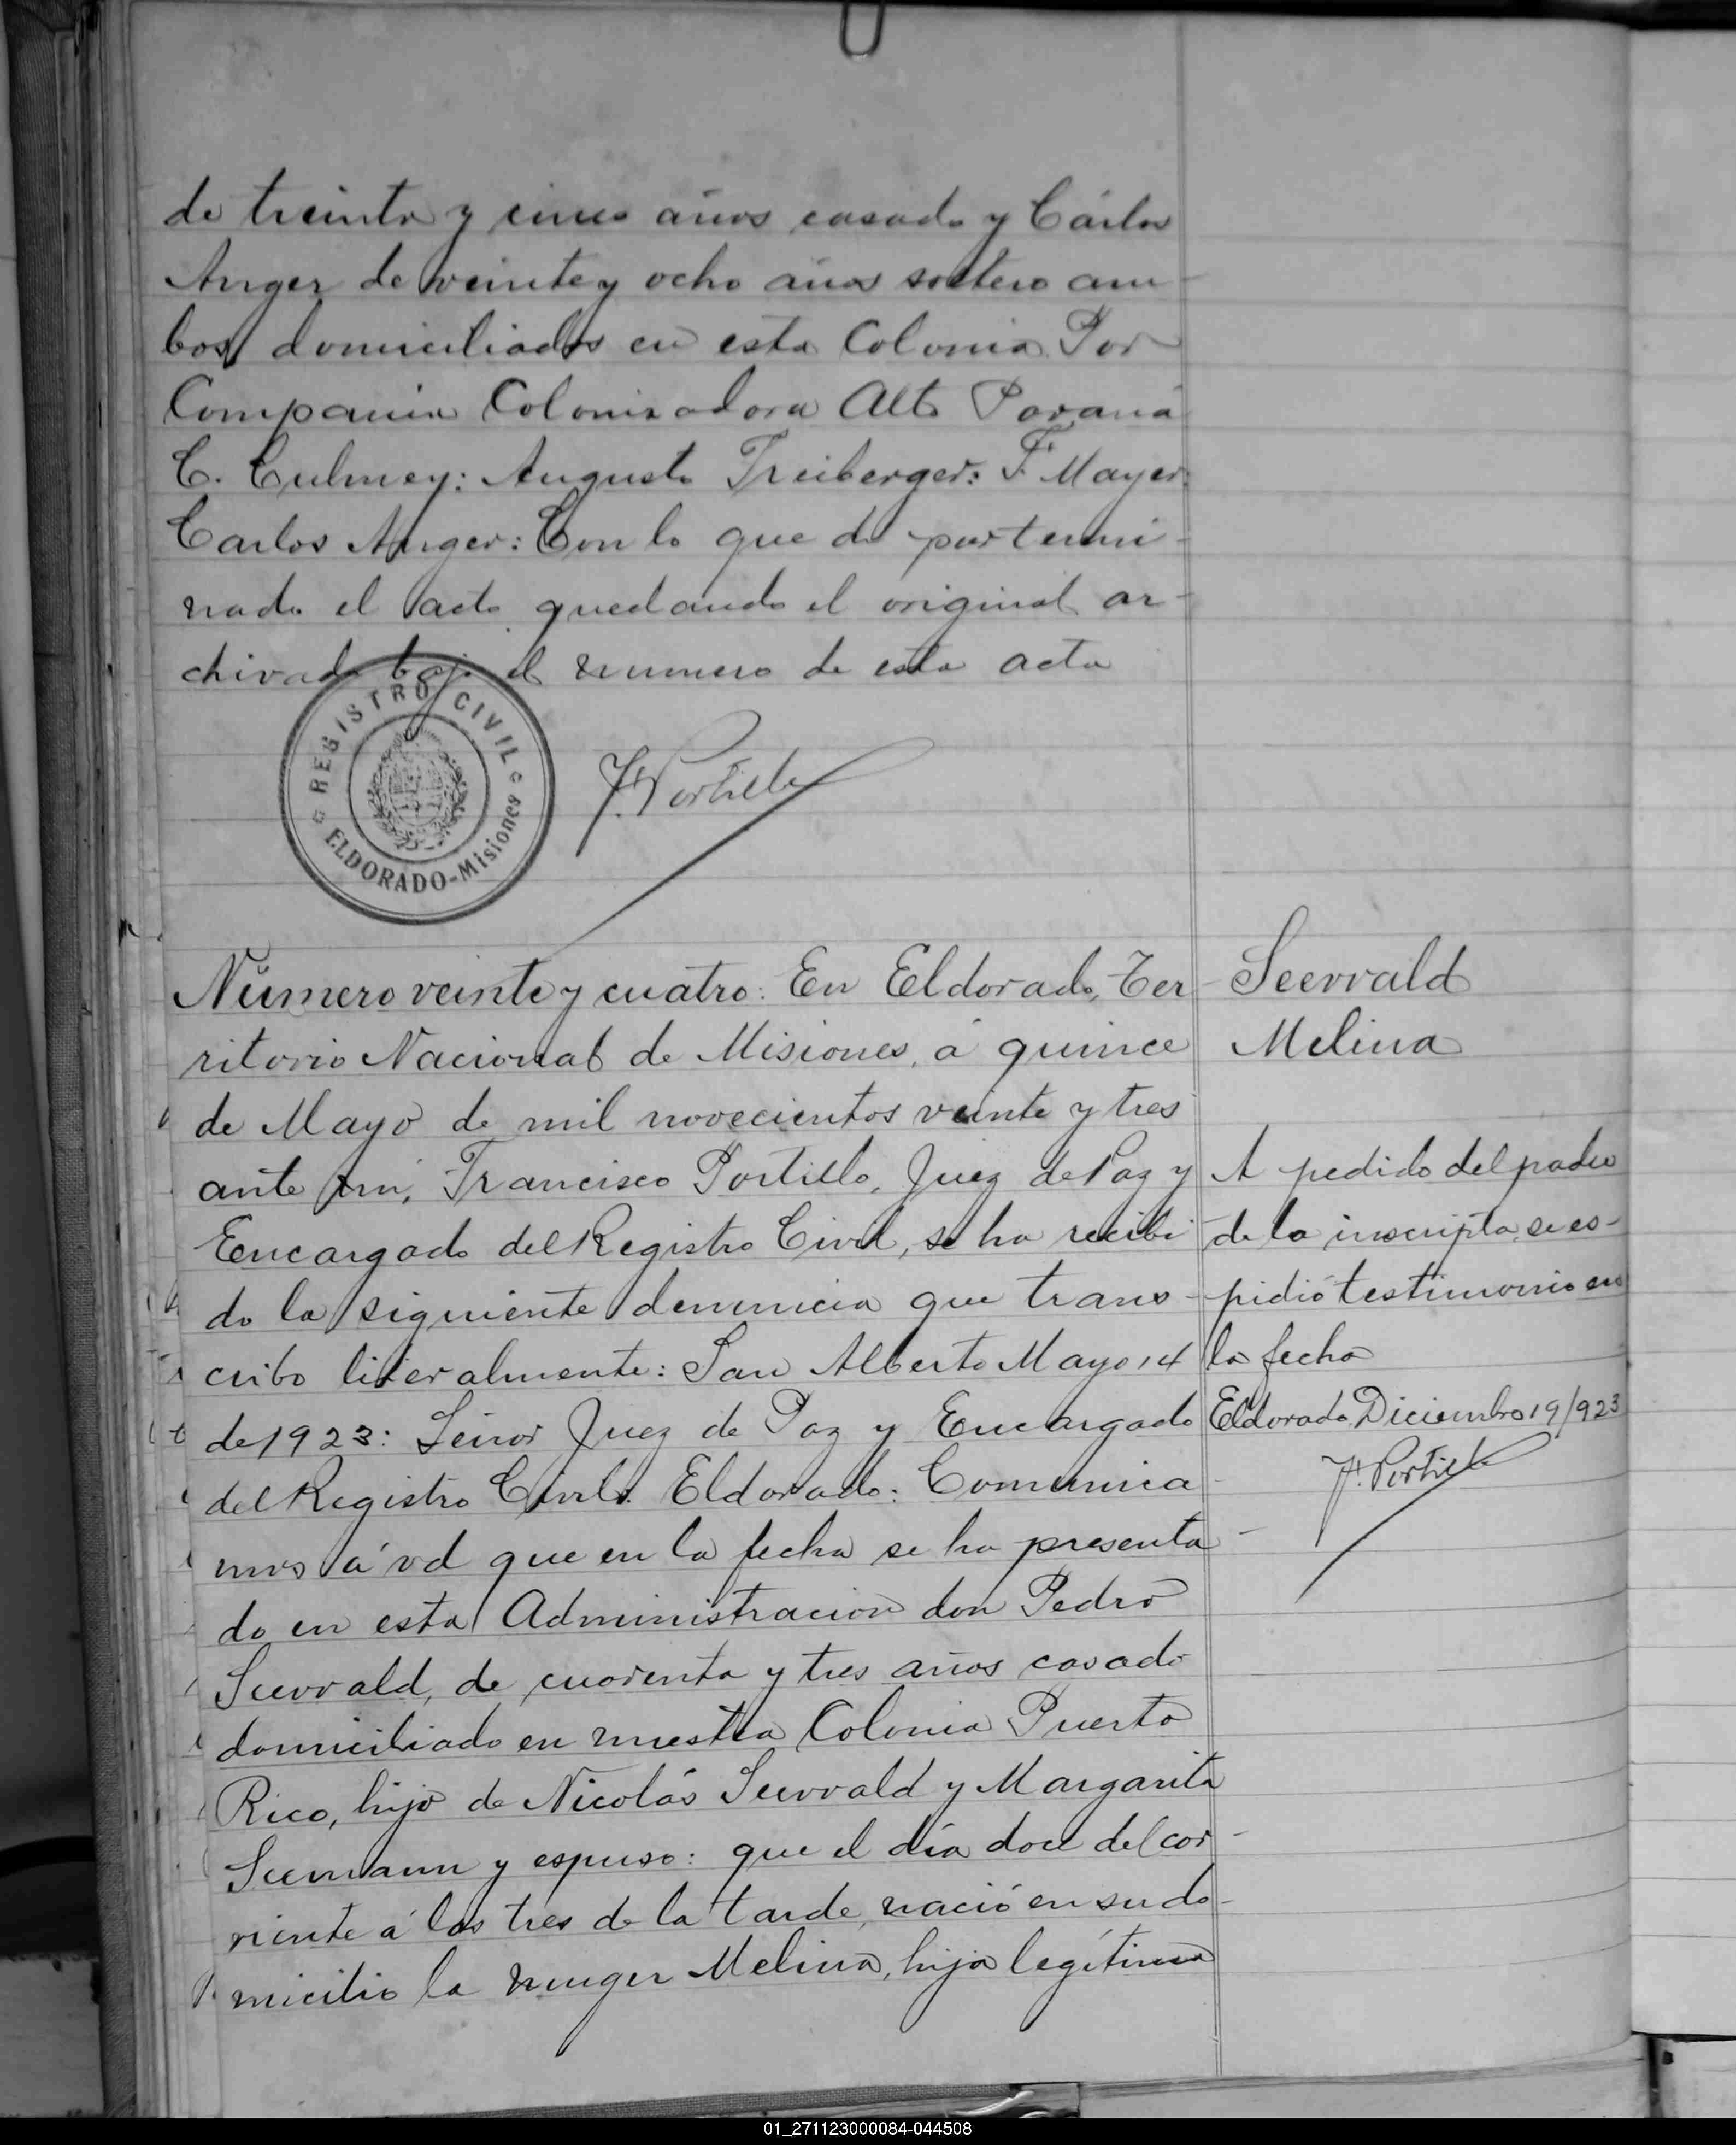 de treinta y cinco años casado y Cárlos
Anger de veinte y ocho años soltero am-
bos domiciliados en esta Colonia Por
Compania Colonizadora Alto Paraná
C. Culmey: Augusto Treiberger: F. Mayer:
Carlos Anger: Con lo que di por termi-
nado el acto quedando el original ar-
chivado bajo el numero de esta acta
REGISTRO CIVIL
ELDORADO-Misiones
F. Portillo
Número veinte y cuatro: En Eldorado, Ter-
ritorio Nacional de Misiones, á quince
de Mayo de mil novecientos veinte y tres
ante mi, Francisco Portillo, Juez de Paz y
Encargado del Registro Civil, se ha recibi-
do la siguiente denuncia que trans-
cribo literalmente: San Alberto Mayo 14
de 1923: Señor Juez de Paz y Encargado
del Registro Civil. Eldorado: Comunica-
mos á vd que en la fecha se ha presenta-
do en esta Administracion don Pedro
Seewald, de cuarenta y tres años casado
domiciliado en nuestra Colonia Puerto
Rico, hijo de Nicolás Seewald y Margarita
Seemann y espuso: que el día doce del cor-
riente á las tres de la tarde, nació en su do-
micilio la muger Melina, hija legítima
Seewald
Melina
A pedido del padre
de la inscripta, se es-
pidió testimonio en
la fecha
Eldorado Diciembre 19/923
F. Portillo
01_271123000084-044508